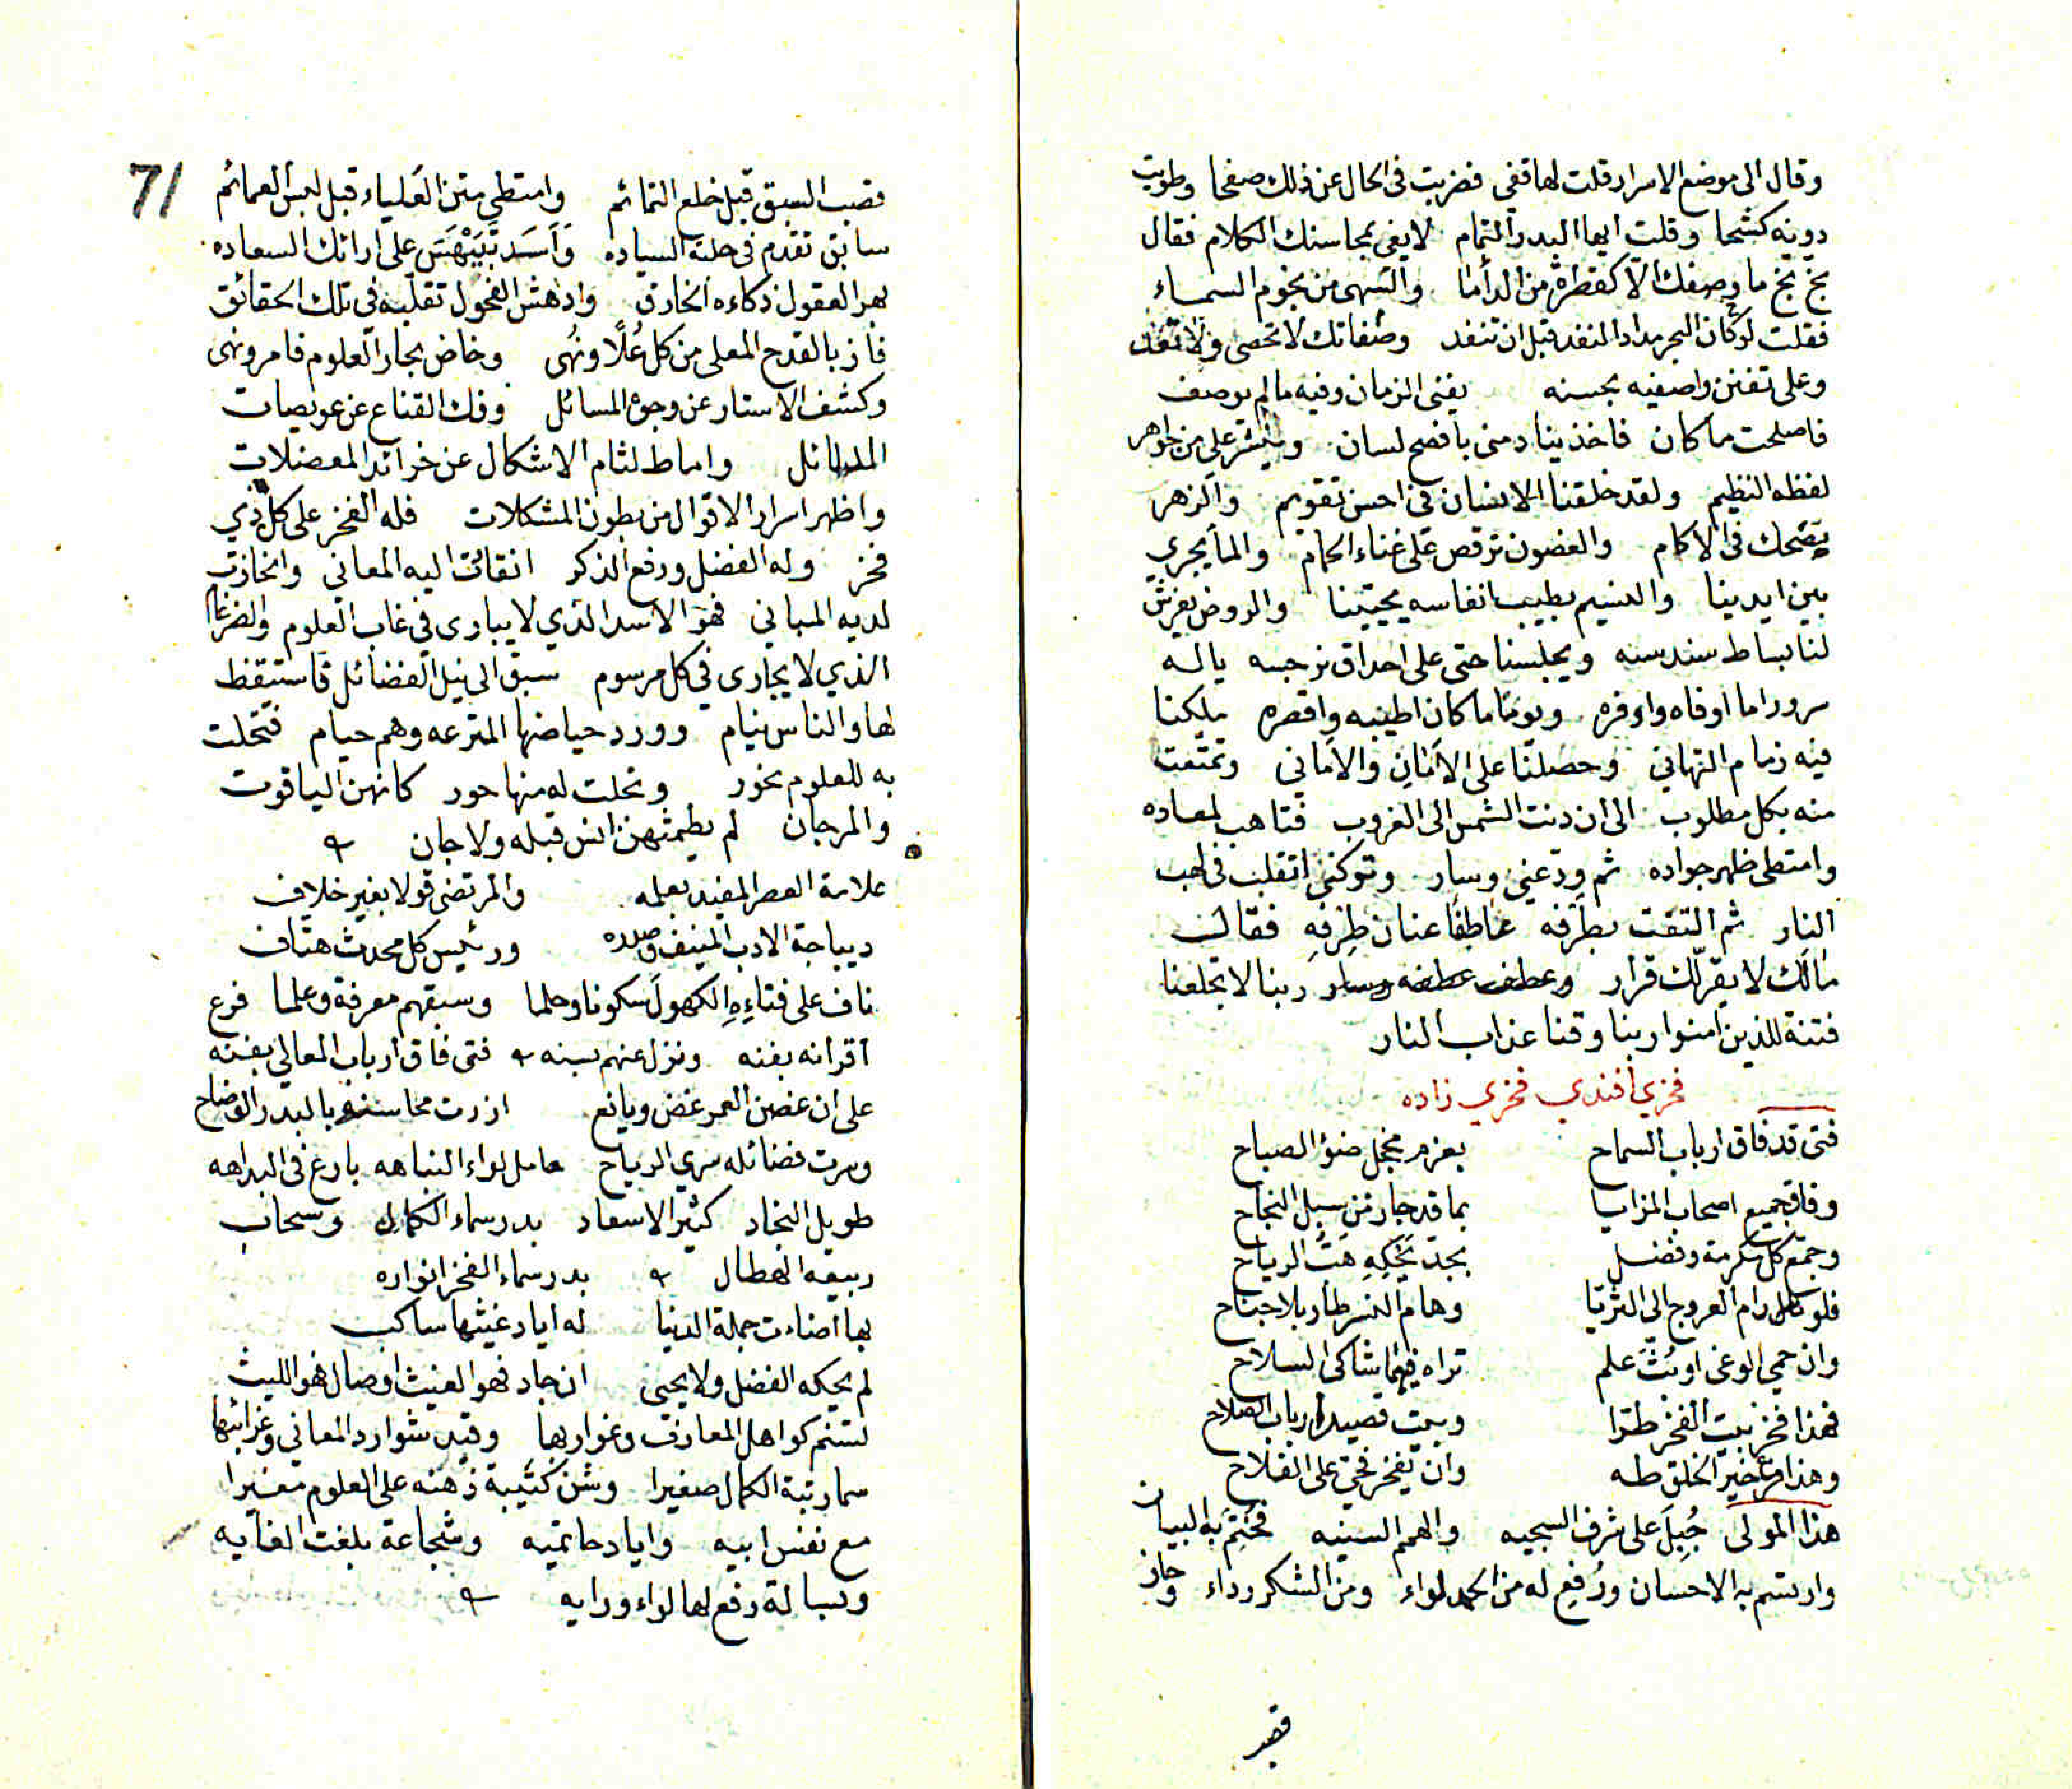 وقال الى موضع الاسرار قلت لها قفى فضربت فى الحال عن ذلك صفحا وطويت
دونه كشحا وقلت ايها البدر التمام لا يفى بمحاسنك الكلام فقال
بخ بخ ما وصفك الا كقطرة من الدأما والسهى من نجوم السماء
فقلت لو كان البحر مدادا لنفد قبل ان تنفد وصفاتك لا تحصى ولا تعد
وعلى تفنن واصفيه بحسنه يفنى الزمان وفيه ما لم يوصف
فاصلحت ما كان فاخذ ينادمنى بافصح لسان وينثر على من جواهر
لفظه النظيم ولقد خلقنا الانسان فى احسن تقويم والزهر
يضحك فى الاكمام والغصون ترقص على غناء الحمام والمأ يجري
بين ايدينا والنسيم بطيب انفاسه يحيينا والروض يفرش
لنا بساط سندسه ويجلسنا حتى على احداق نرجسه ياله
سرورا ما اوفاه واوفره ويوما ما كان اطيبه واقصره ملكنا
فيه زمام التهاني وحصلنا على الامان والاماني وتمتعت
منه بكل مطلوب الى ان دنت الشمس الى الغروب فتاهب لمعاده
وامتطى ظهر جواده ثم ودعنى وسار وتركنى اتقلب فى لهب
النار ثم التفت بطرفه عاطفا عنان طرفه فقالت
مالك لا يقر لك قرار وعطف عطفه وسار ربنا لا تجلعنا
فتنة للذين امنوا ربنا وقنا عذاب النار
فخري أفندي فخري زاده
فتى قد فاق ارباب السماح بعزم مخجل ضؤ الصباح
وفاق جميع اصحاب المزايا بما قد حاز من سبل النجاح
وجمع كل مكرمة وفضل بجد يحكه هبت الرياح
فلو رام العروج الى الثريا وهام النسر طار بلا جناح
وان حمي الوغى او بث علم تراه فيهما شاكى السلاح
فهذا فخر بيت الفخر طرا وبيت قصيد ارباب الصلاح
وهذا من خير الخلق طه وان يفخر فحق على الفلاح
هذا المولى جبل على شرف السجيه والهمم السنيه فختم به البيان
وارتسم به الاحسان ورفع له من الحمد لواء ومن الشكر رداء وحاز
قصب
71
قصب السبق قبل خلع التمائم وامتطى متن العلياء قبل لبس العمائم
سابق تقدم فى حلبة السياده واسد تبيهس على ارائك السعاده
بهر العقول ذكاءه الخارق وادهش الفحول تقلبه فى تلك الحقائق
فاز بالقدح المعلى من كل علا ونهى وخاض بحار العلوم فامر ونهى
وكشف الاستار عن وجوه المسائل وفك القناع عن عويصات
واماط لثام الاشكال عن خرائد المعضلات
واظهر اسرار الاقوال من بطون المشكلات فله الفخر على كل ذي
فخر وله الفضل ورفع الذكر انقادت اليه المعاني وانحازت
لديه المباني فهو الاسد الذي لا يبارى في غاب العلوم والضرغام
الذي لا يجارى في كل مرسوم سبق الى نيل الفضائل فاستيقظ
لها والناس نيام وورد حياضها المترعه وهم حيام فتحلت
به للعلوم نحور وتجلت له منها حور كانهن الياقوت
والمرجان لم يطمثهن انس قبله ولا جان
علامة العصر المفيد بعلمه والمرتضى قولا بغير خلاف
ديباجة الادب المنيف وصدره ورئيس كل محدث هتاف
ناف على فتاءه الكهول سكونا وحلما وسبقهم معرفة وعلما فرع
اقرانه بفنه ونزل عنهم بسنه فتى فاق ارباب المعالي بفنه
على ان غصن العمر غض ويانع ازرت محاسنه بالبدر الوضاح
وسرت فضائله سري الرياح حامل لواء النباهه بارع فى البداهه
طويل النجاد كثير الاسعاد بدر سماء الكمال وسحاب
ربيعه الهطال بدر سماء الفخر انواره
بها اضاءت جملة الدنيا له اياد غيثها ساكب
لم يحكه الفضل ولا يحيى ان جاد فهو الغيث او صال فهو الليث
تسنم كواهل المعارف وغواربها وقيد شوارد المعاني وغرائبها
سما رتبة الكمال صغيرا وشن كتيبة ذهنه على العلوم مغيرا
مع نفس ابيه واياد حاتميه وشجاعة بلغت الغايه
وبسالة رفع لها لواء ورايه